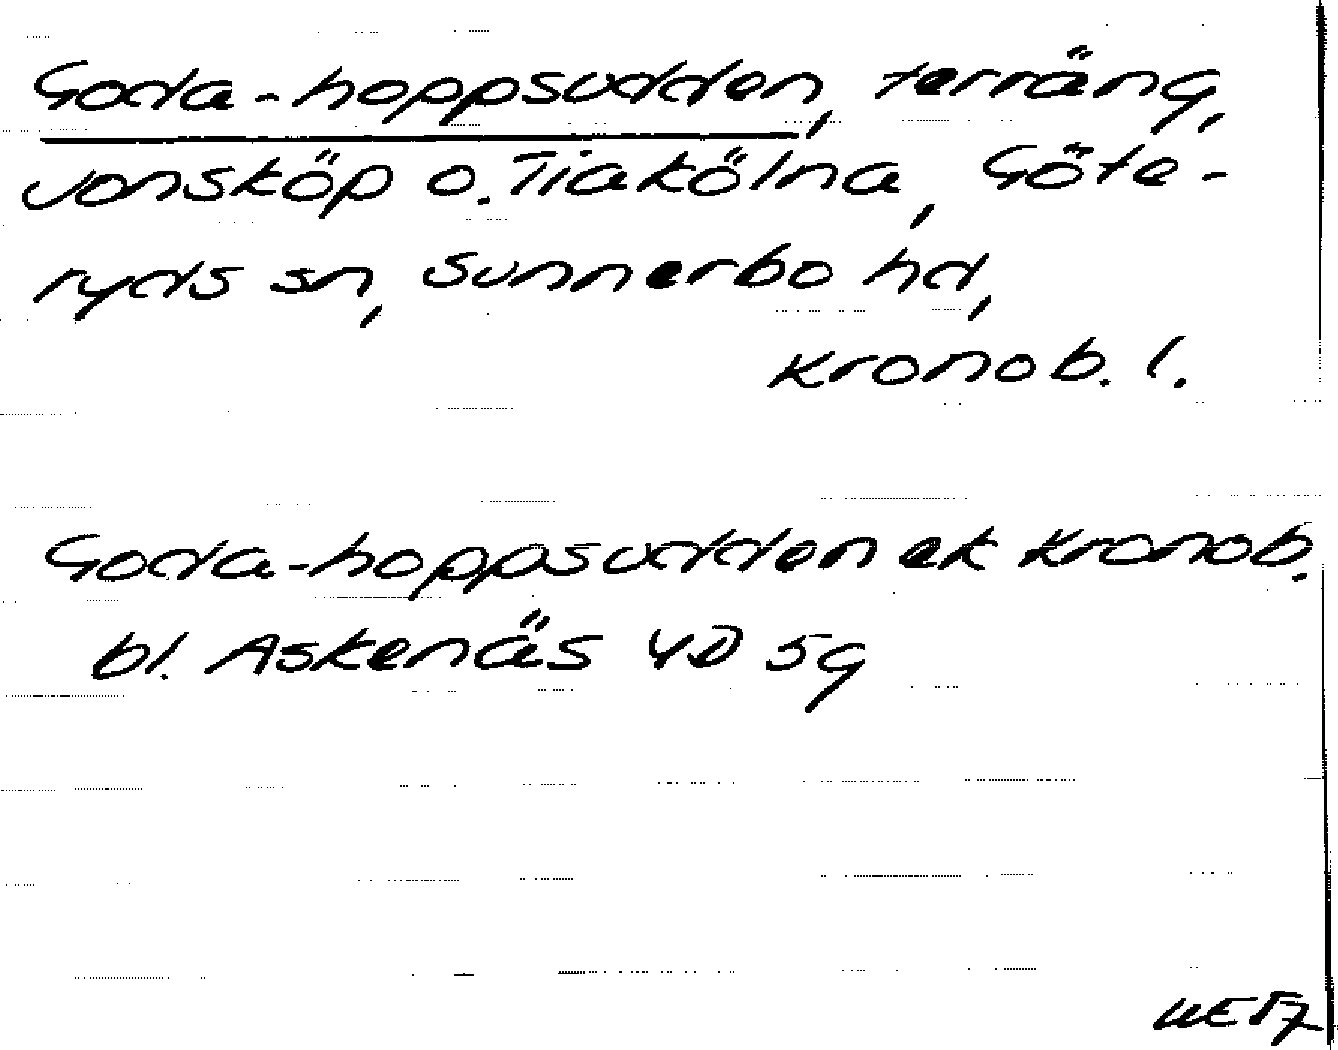 Goda-hoppsudden, terräng,
Jonsköp o. Tiakölna, Göte-
ryds sn, Sunnerbo hd,
Kronob. l.
Goda-hoppsudden ek Kronob.
bl. Askenäs 4D 5g